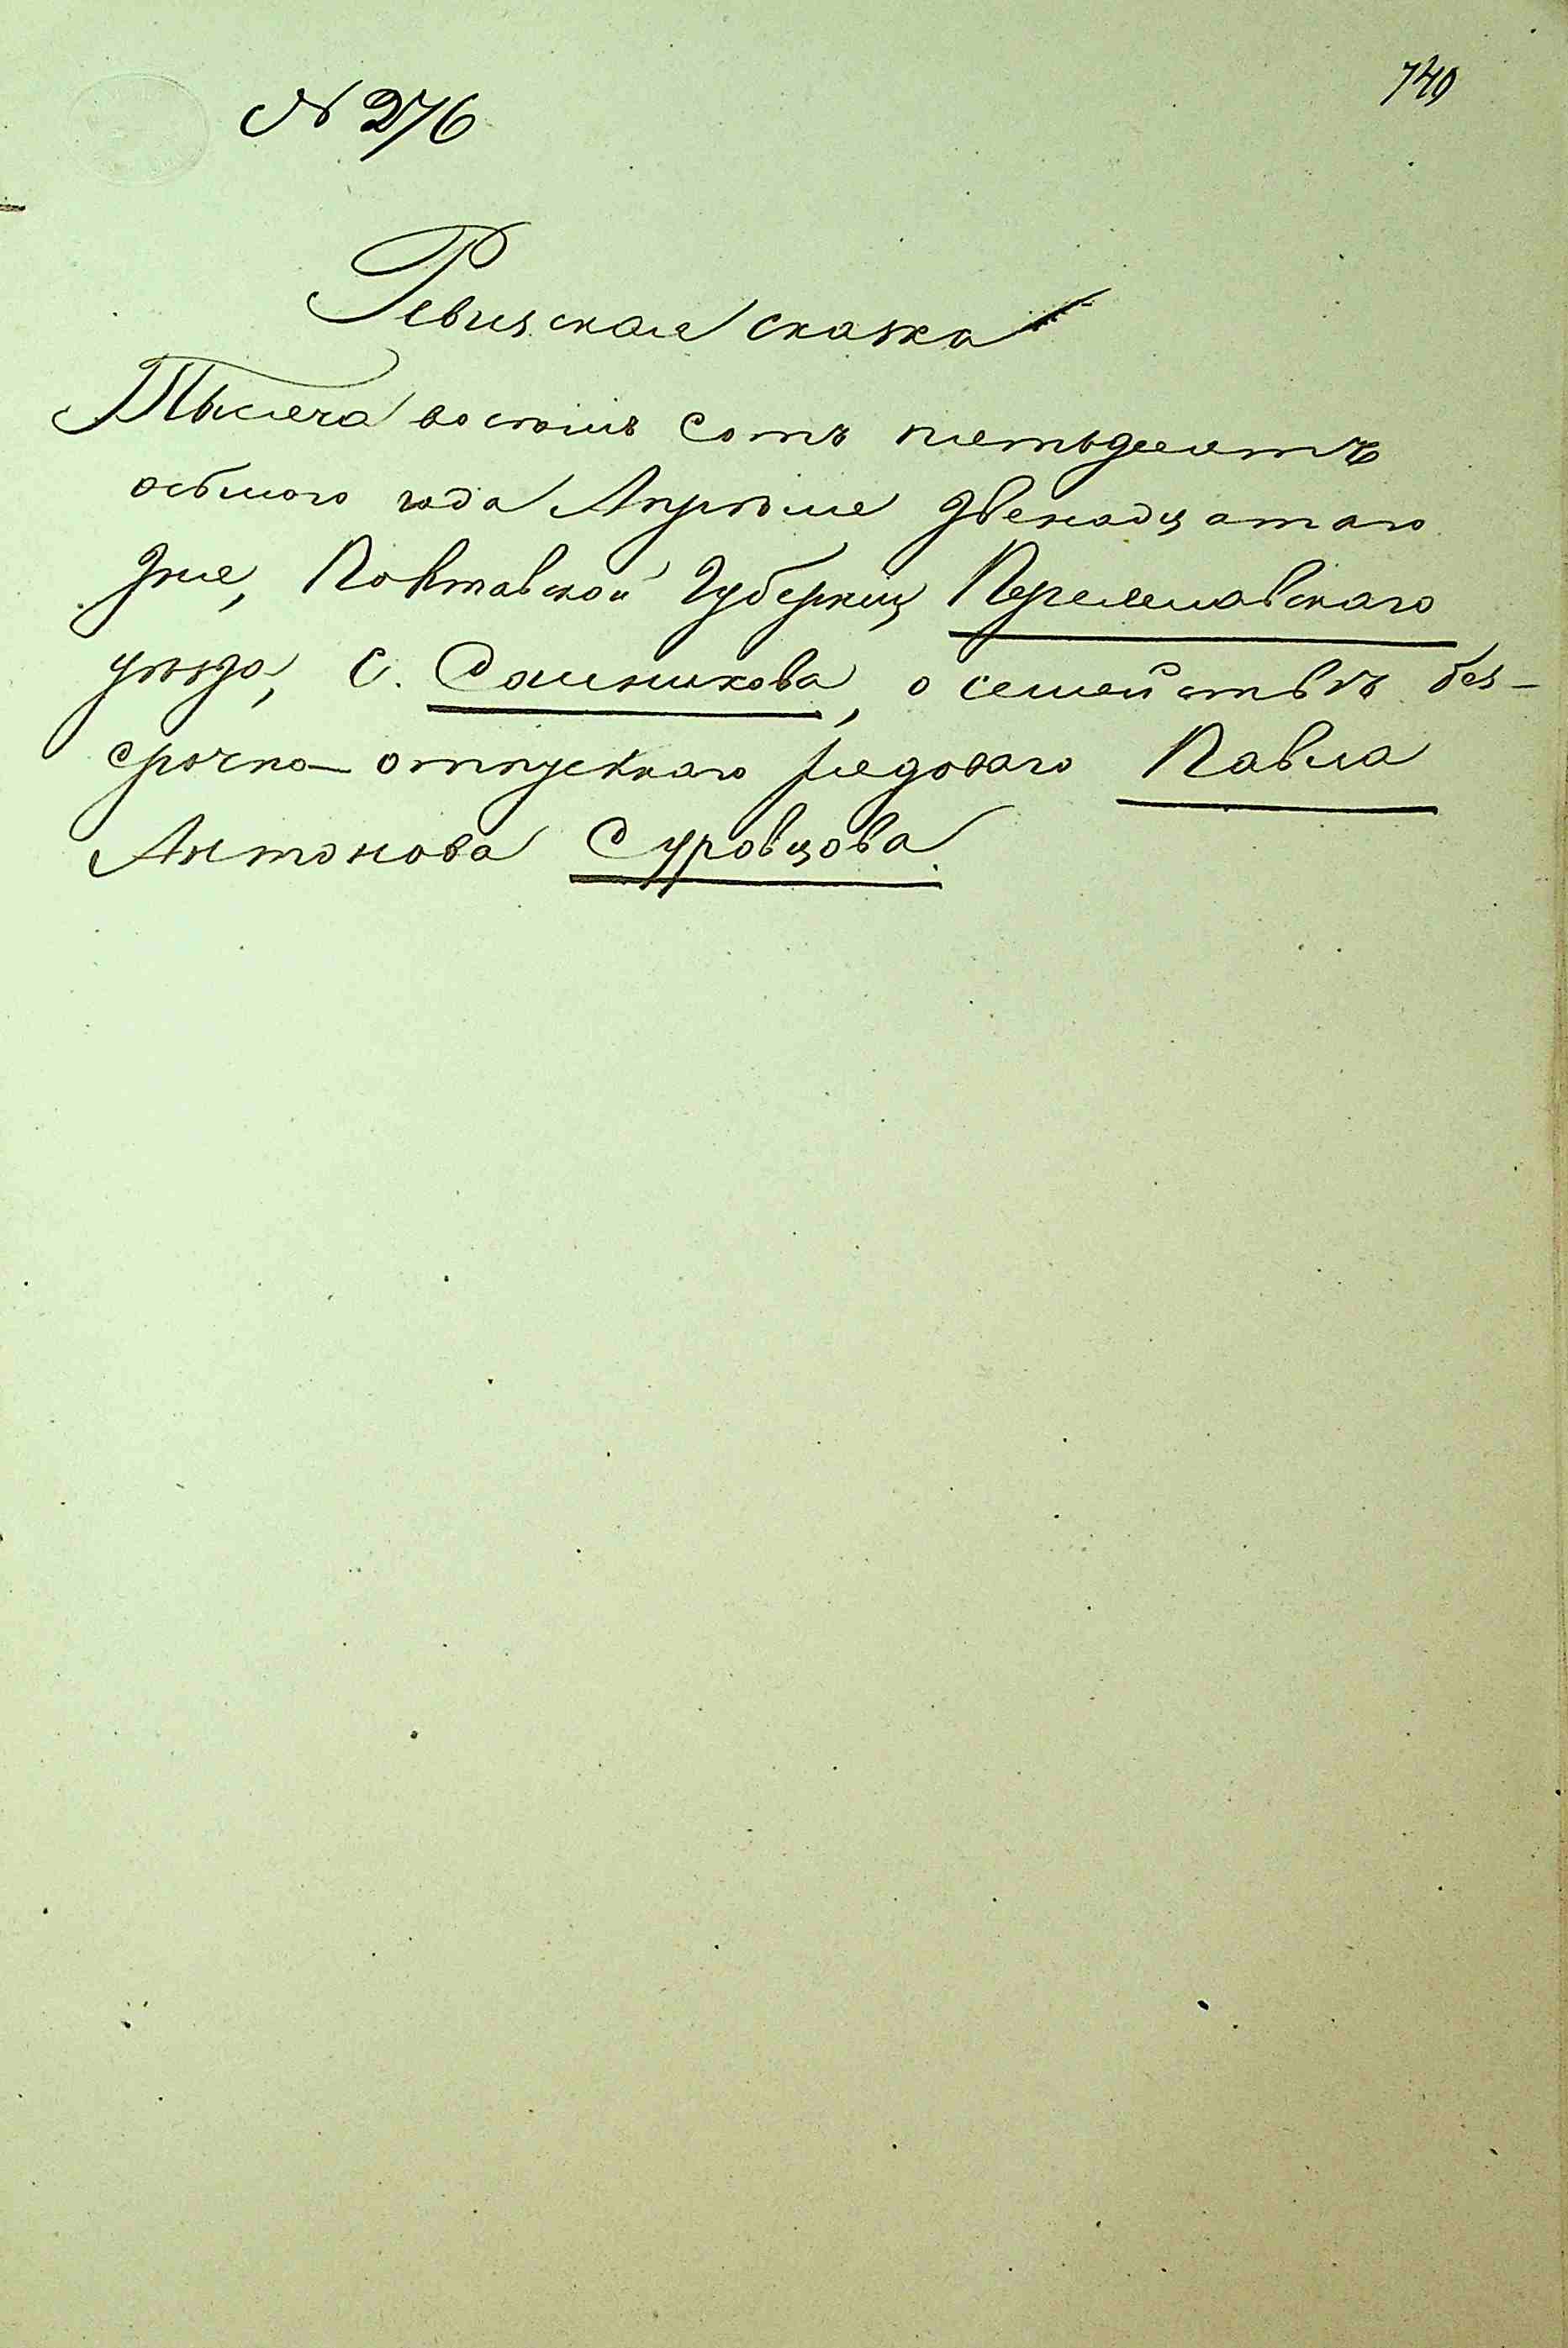 740
№ 276
Ревизская сказка
Тысяча восемь сотъ пятьдесятъ
осьмого года Апрѣля двенадцатаго
дня, Полтавской Губерніи Переяславскаго
уѣзда, С. Сошникова, о семействѣ без-
срочно-отпускнаго рядоваго Павла
Антонова Суровцова.